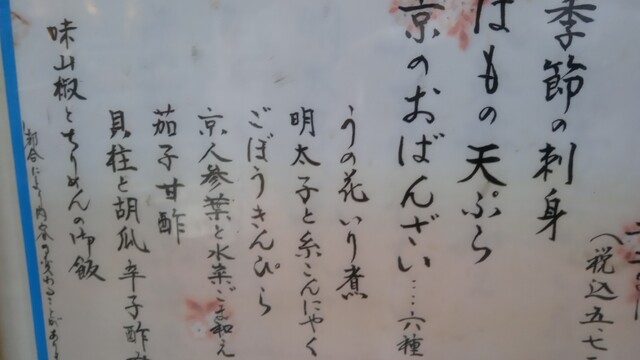 （税込五、七
季節の刺身
はもの天ぷら
京のおばんざい…六種
うの花いり煮
明太子と糸こんにゃく
ごぼうきんぴら
京人参葉と水菜ごま和え
茄子甘酢
貝柱と胡瓜辛子酢
味山椒とちりめんの御飯
都合により内容が変わることがあり